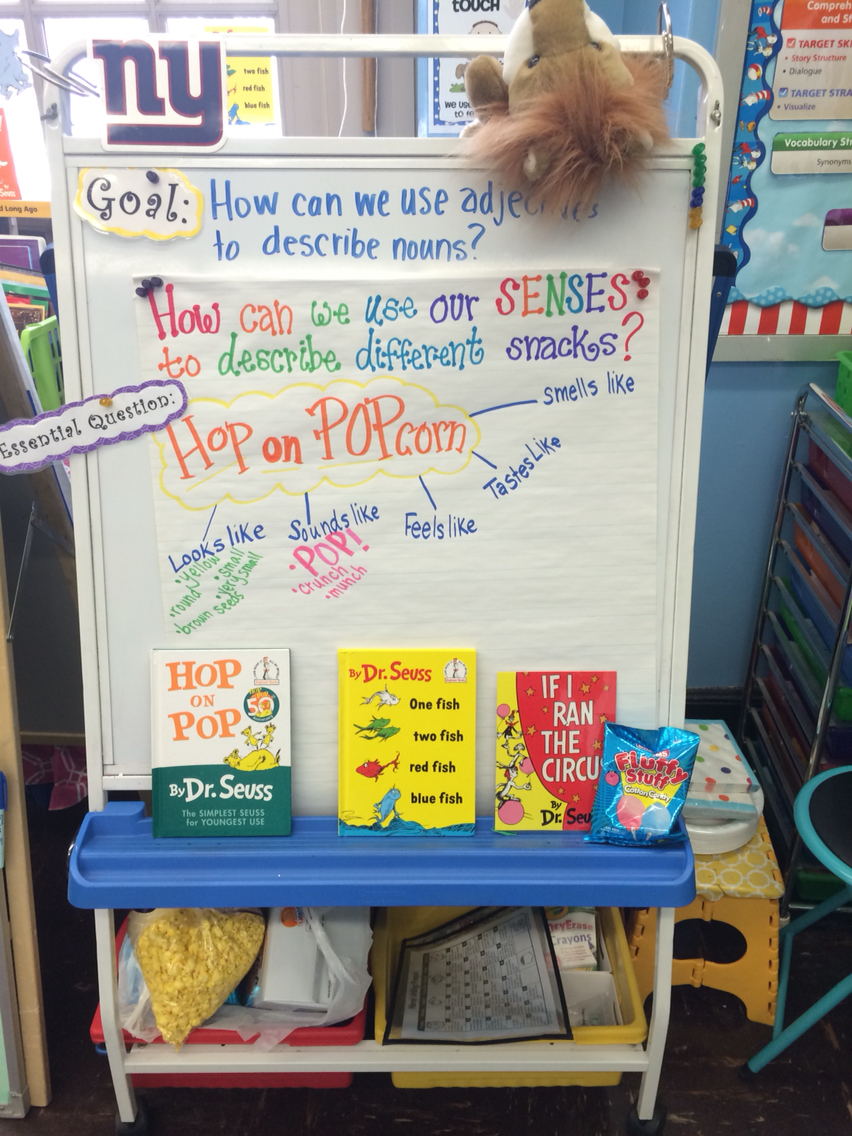 TOUCH
two fish
red fish
blue fish
ny
TARGET SK
• Story Structure
• Dialogue
TARGET STRA
• Visualize
Vocabulary St
Synonyms
d Long Ago
Goal:
How can we use adjectives
to describe nouns?
How can we use our SENSES
to describe different snacks?
Essential Question:
Hop on POPcorn
smells like
Tastes Like
Feels like
Sounds like
• POP!
• crunch
• munch
Looks like
• yellow
• small
• round
• very small
• brown seeds
HOP
ON
POP
By Dr. Seuss
The SIMPLEST SEUSS
for YOUNGEST USE
By Dr. Seuss
One fish
two fish
red fish
blue fish
IF I
RAN
THE
CIRCU
By
Dr. Seu
Fluffy
Stuff
Cotton Candy
Crayons